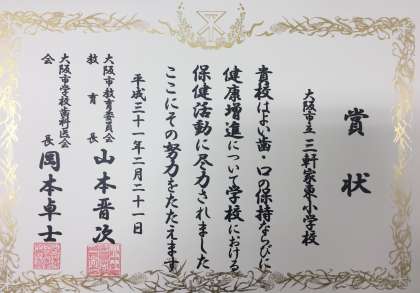 賞状
大阪市立 三軒家東小学校
貴校はよい歯・口の保持ならびに
健康増進について学校における
保健活動に尽力されました
ここにその努力をたたえます
平成三十一年二月二十一日
大阪市教育委員会
教育長 山本晋次
大阪市学校歯科医会
会長 岡本卓士